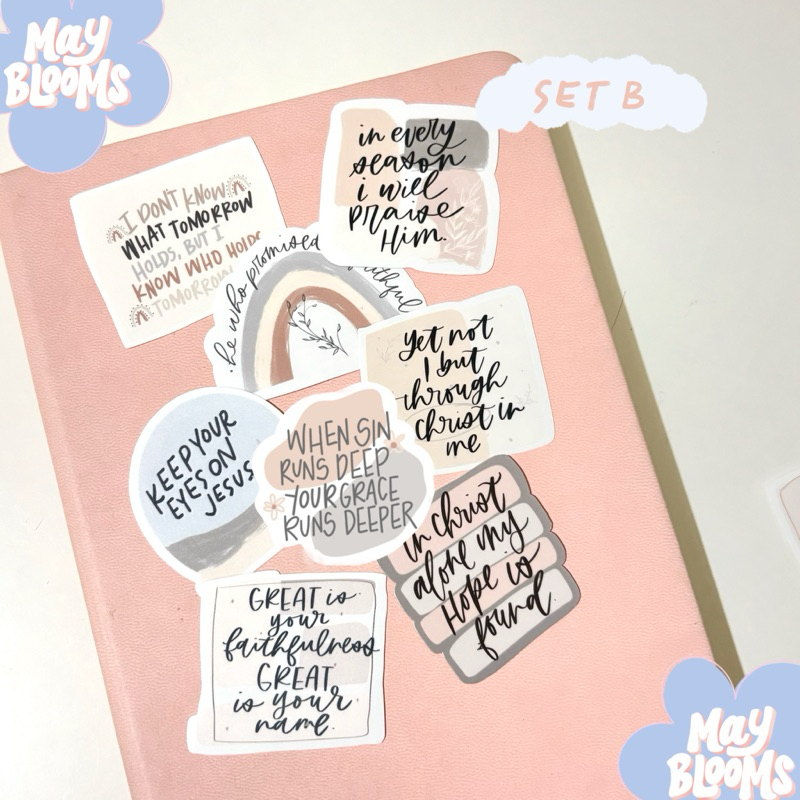 May
BLOOMS
SET B
in every
season
i will
praise
Him.
I DON'T KNOW
WHAT TOMORROW
HOLDS, BUT I
KNOW WHO HOLDS
TOMORROW
he who promised
faithful
Yet not
I but
through
christ in
me
KEEP YOUR
EYES ON
JESUS
WHEN SIN
RUNS DEEP
YOUR GRACE
RUNS DEEPER
in christ
alone my
Hope is
found
GREAT is
your
faithfulness
GREAT
is your
name.
May
BLOOMS